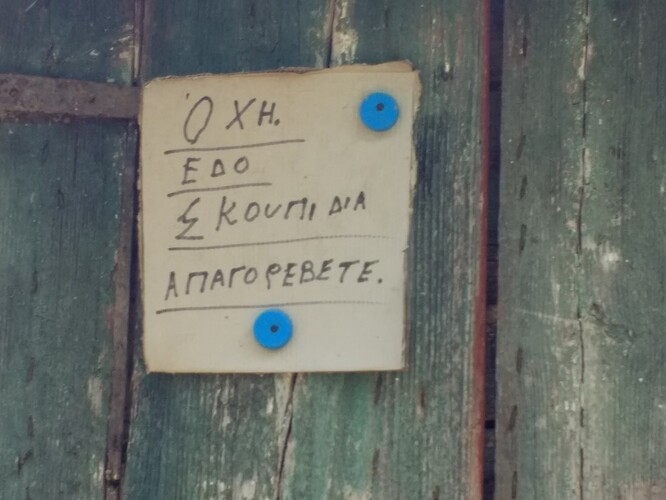 Ὁ ΧΗ.
ΕΔΟ
ΣΚΟΥΠΙΔΙΑ
ΑΠΑΓΟΡΕΒΕΤΕ.